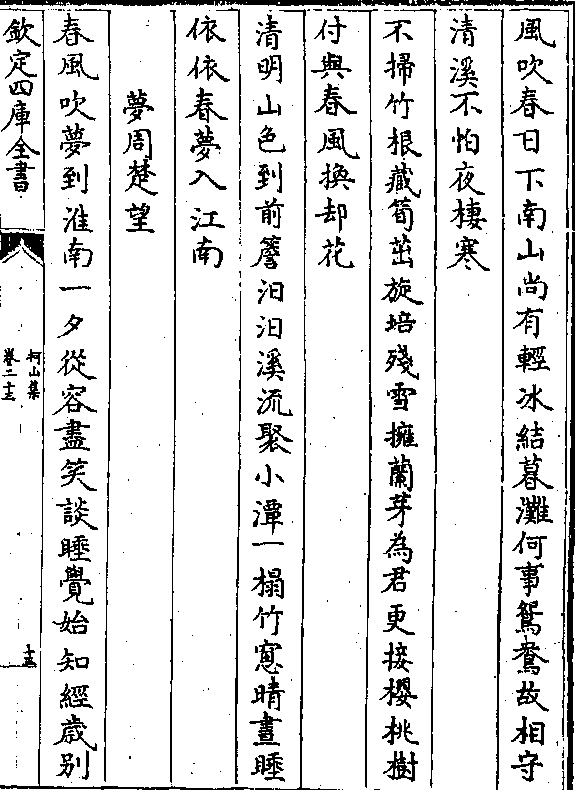 風吹春日下南山尚有輕冰結暮灘何事鴛鴦故相守
清溪不怕夜棲寒
不掃竹根藏筍茁旋培殘雪擁蘭芽為君更接櫻桃樹
付與春風換却花
清明山色到前簷汩汩溪流聚小潭一榻竹窓晴晝睡
依依春夢入江南
夢周楚望
春風吹夢到淮南一夕從容盡笑談睡覺始知經歲别
欽定四庫全書
柯山集
卷二十三
十三